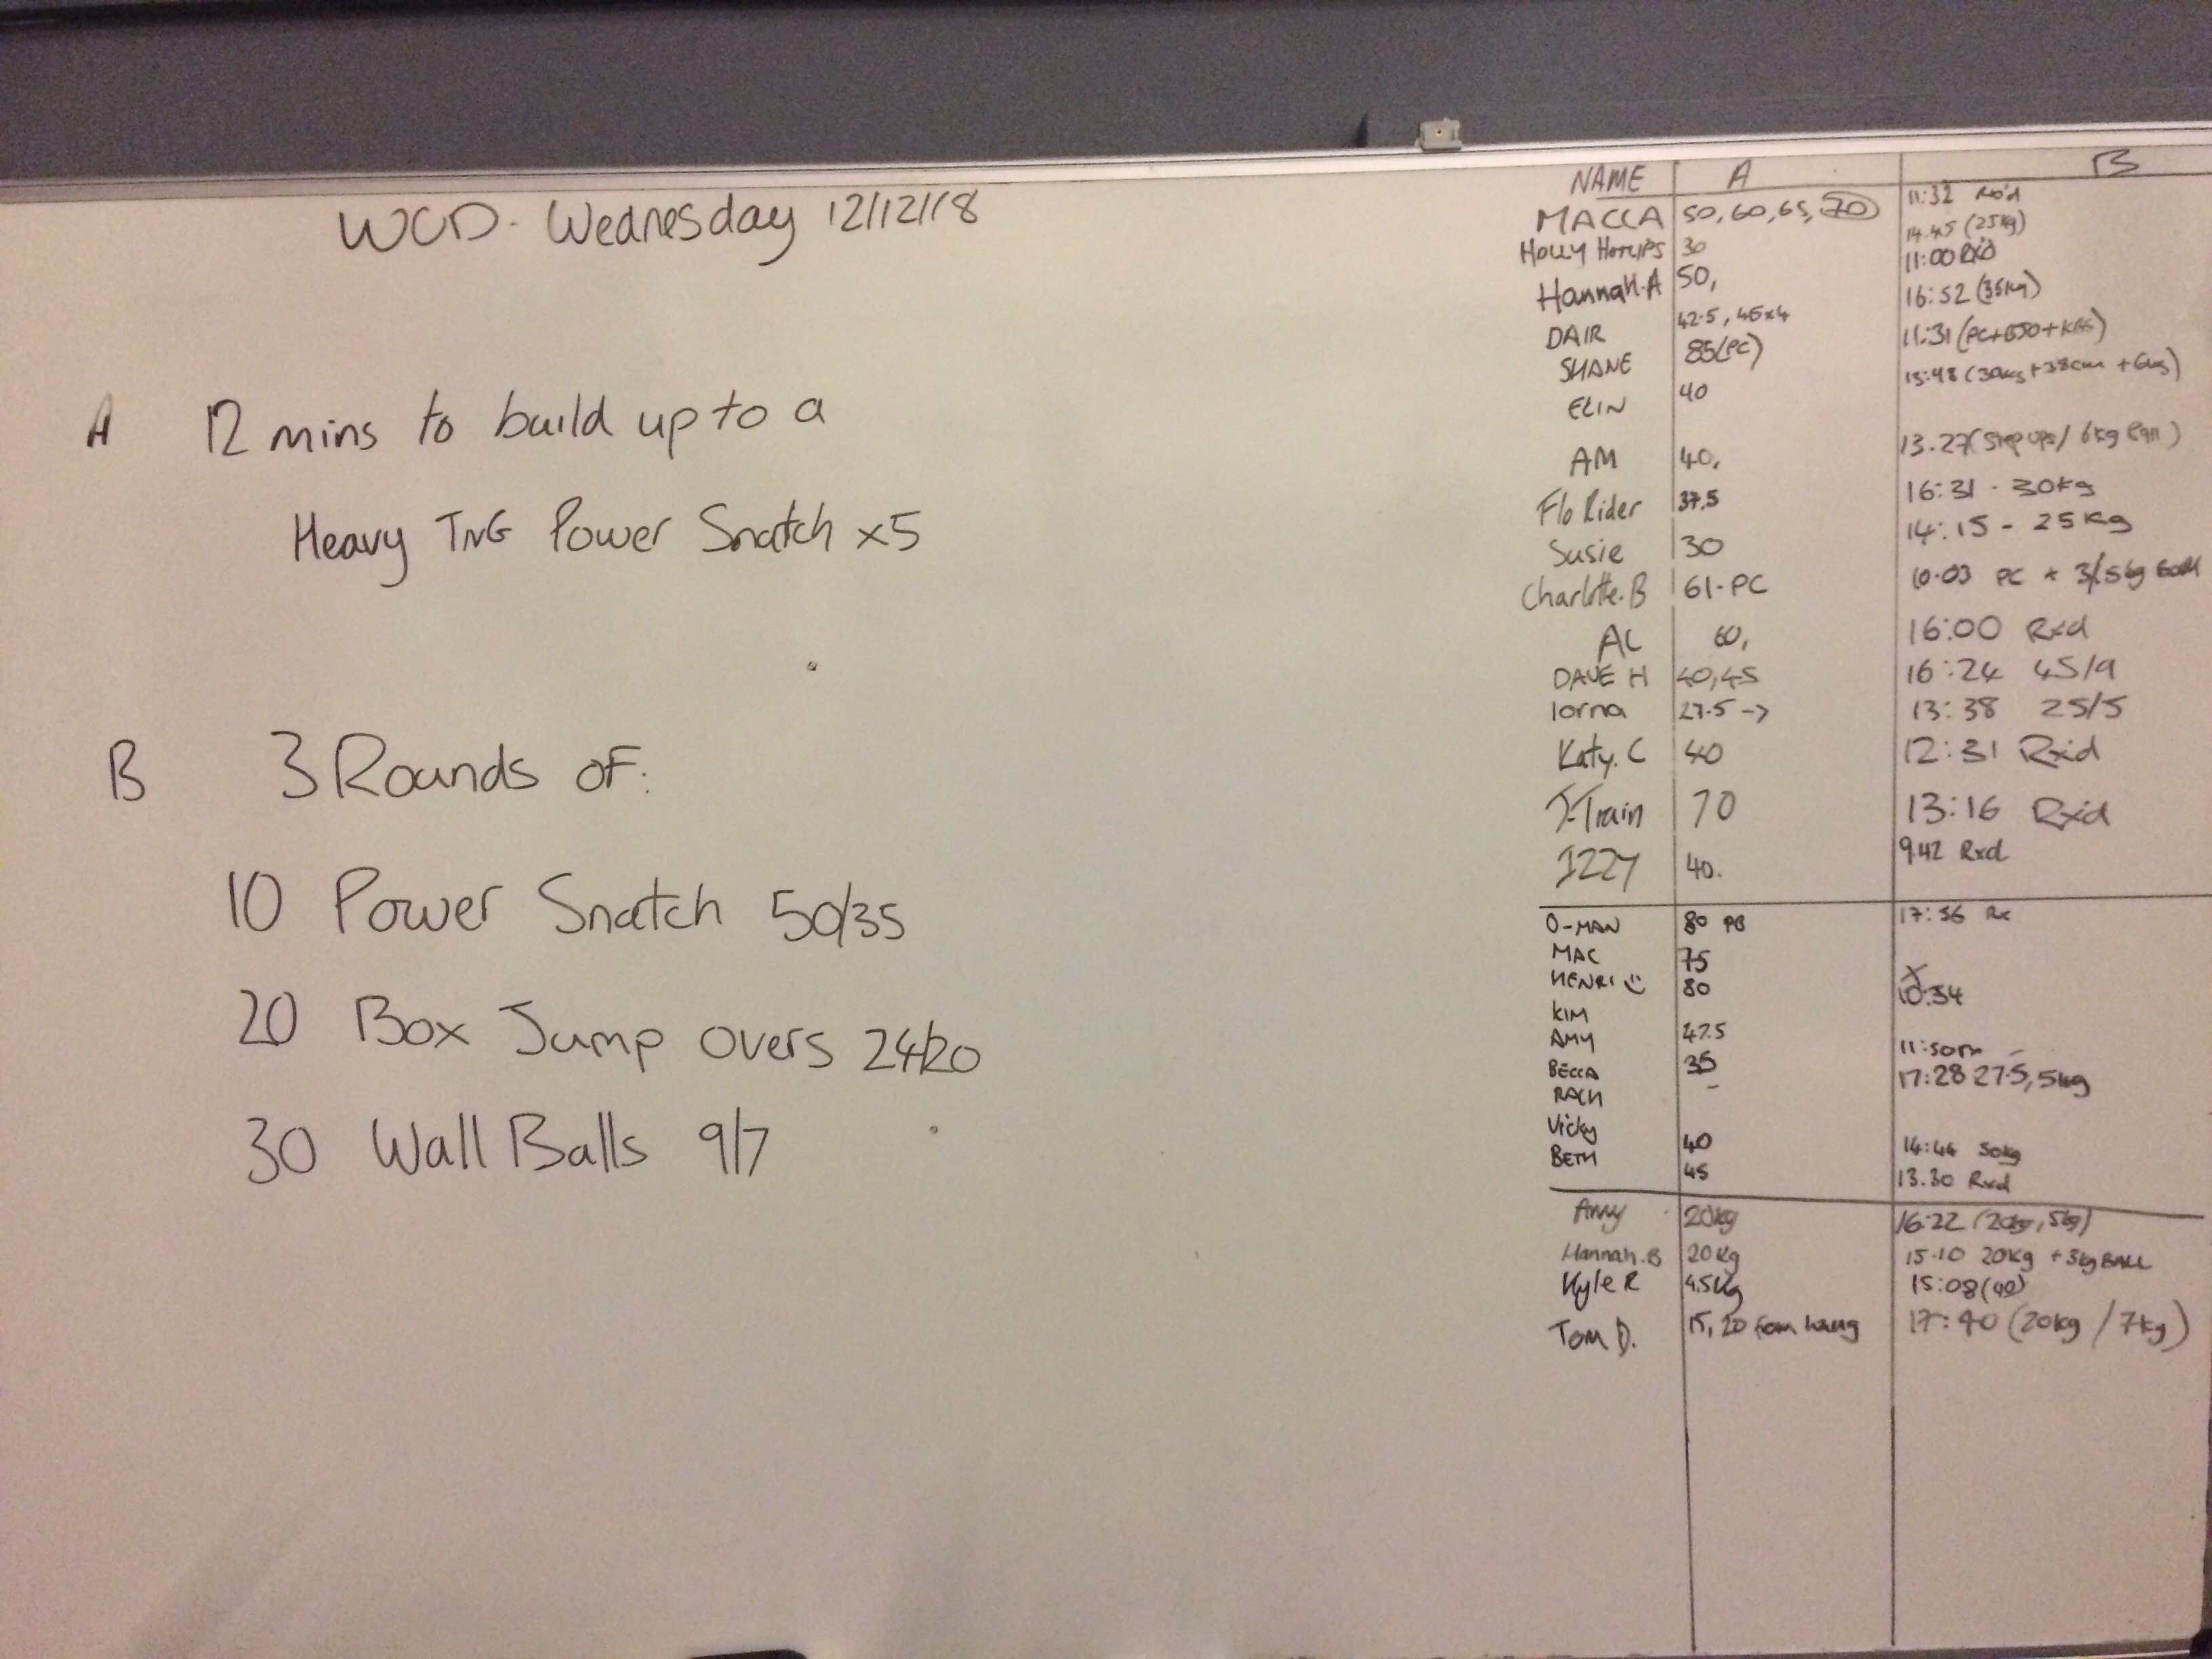 WOD. Wednesday 12/12/18
A 12 mins to build up to a
Heavy TnG Power Snatch x5
B 3 Rounds of:
10 Power Snatch 50/35
20 Box Jump Overs 24/20
30 Wall Balls 9/7
NAME A B
MACCA 50, 60, 65, 70 11:32 Rx'd
HOLLY HOTLIPS 30 14.45 (25kg)
Hannah.A 50, 11:00 Rx'd
DAIR 42.5, 45x4 16:52 (35kg)
SHANE 85(PC) 11:31 (PC+BJO+KBS)
ELIN 40 15:48 (30kgs+38cm+6kgs)
AM 40, 13.27 (Step ups/ 6kg Ball)
Flo Rider 37.5 16:31 - 30kg
Susie 30 14:15 - 25kg
Charlotte.B 61-PC 10.03 PC + 3/5kg
AC 60, 16:00 Rxd
DAVE H 40,45 16:24 45/9
lorna 27.5 -> 13:38 25/5
Katy.C 40 12:31 Rx'd
J-Train 70 13:16 Rx'd
IZZY 40. 9.42 Rxd
O-MAN 80 PB 17:36 Rx
MAC 75
HENRI 80 10:34
KIM
AMY 42.5 11:50rx
BECCA 35 17:28 27.5, 5kg
RACH -
Vicky 40 14:44
BETH 45 13.30 Rxd
Amy 20kg 16:22 (20kg, 5kg)
Hannah.B 20kg 15.10 20kg + 3kg BALL
Kyle R 45kg 15:08 (40)
Tom D. 15, 20 from hang 17:40 (20kg / 7kg)